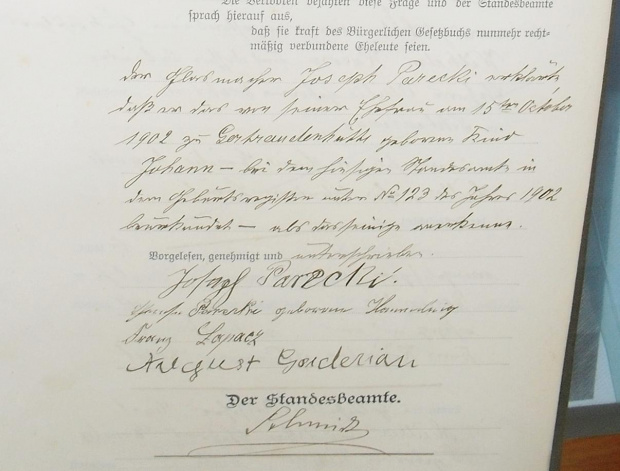 Die Verlobten bejahten diese Frage und der Standesbeamte
sprach hierauf aus,
daß sie kraft des Bürgerlichen Gesetzbuchs nunmehr recht-
mäßig verbundene Eheleute seien.
der Glasmacher Joseph Parecki erklärte
daß er das von seiner Ehefrau am 15ten October
1902 zu Gertraudenhütte geborene Kind
Johann – bei dem hiesigen Standesamte in
dem Geburtsregister unter No 123 des Jahres 1902
beurkundet – als das seinige anerkenne.
Vorgelesen, genehmigt und unterschrieben.
Joseph Parecki.
Parecki geborene
Franz Lapacz
August Guderian
Der Standesbeamte.
Schmidt